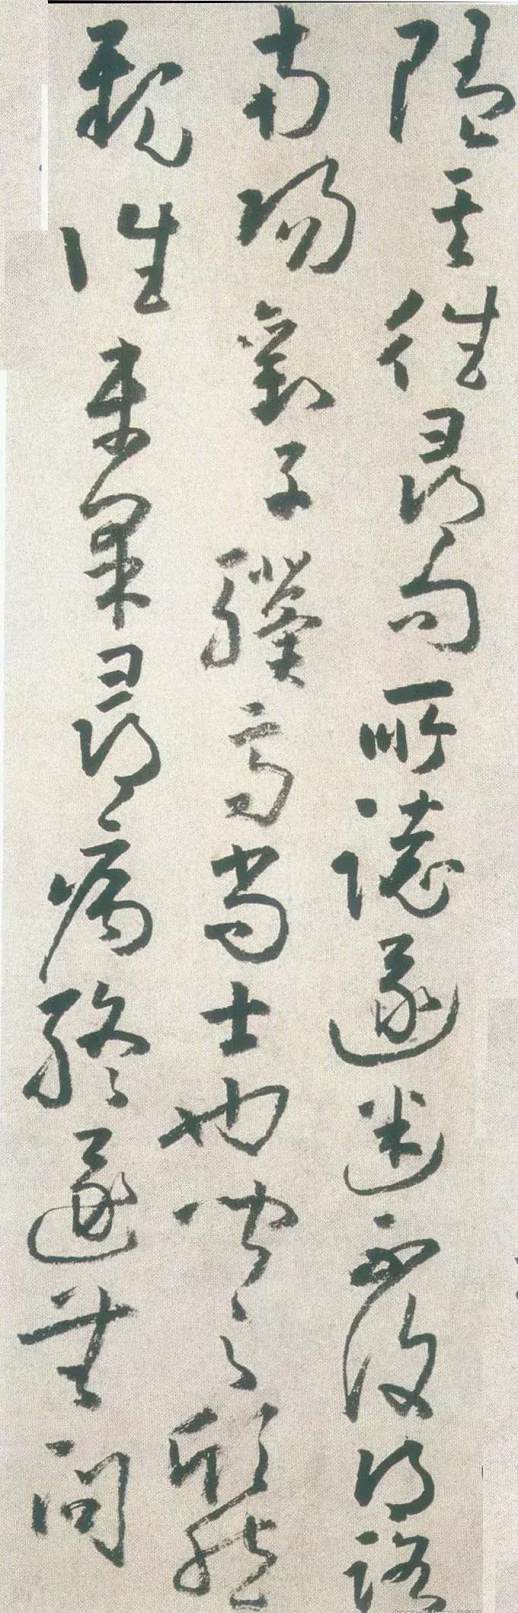 随其往尋向所誌遂迷不復得路
南陽劉子驥高尚士也聞之欣然
親往未果尋病終遂無問